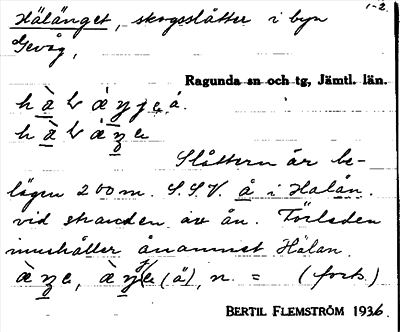 Hälänget, skogsslåtter i byn 1-2.
Gevåg,
Ragunda sn och tg, Jämtl. län.
Slåttern är be-
lägen 200 m. S.S.V. å i Halån.
vid stranden av ån. Förleden
innehåller ånamnet Hälan.
n. = (forts.)
BERTIL FLEMSTRÖM 1936.